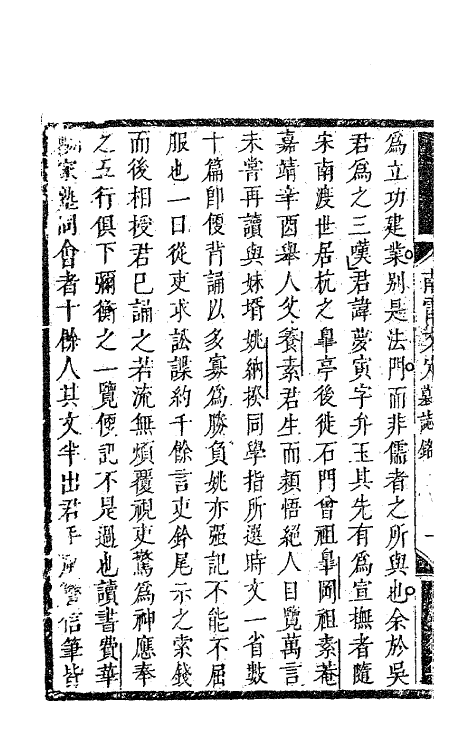 為立功建業別是法門而非儒者之所與也余於吳
君為之三嘆君諱夢寅字弁玉其先有為宣撫者隨
宋南渡世居杭之臯亭後徙石門曾祖臯岡祖素菴
嘉靖辛酉舉人父養素君生而穎悟絕人目覽萬言
未嘗再讀與妹壻姚納揆同學指所選時文一省數
十篇卽便背誦以多寡為勝負姚亦强記不能不屈
服也一日從吏求訟諜約千餘言吏鈐尾示之索錢
而後相授君已誦之若流無煩覆視吏驚為神應奉
之五行俱下彌衡之一覽便記不是過也讀書費華
家塾同會者十餘人其文半出君手信筆皆
南雷文定墓誌銘
一